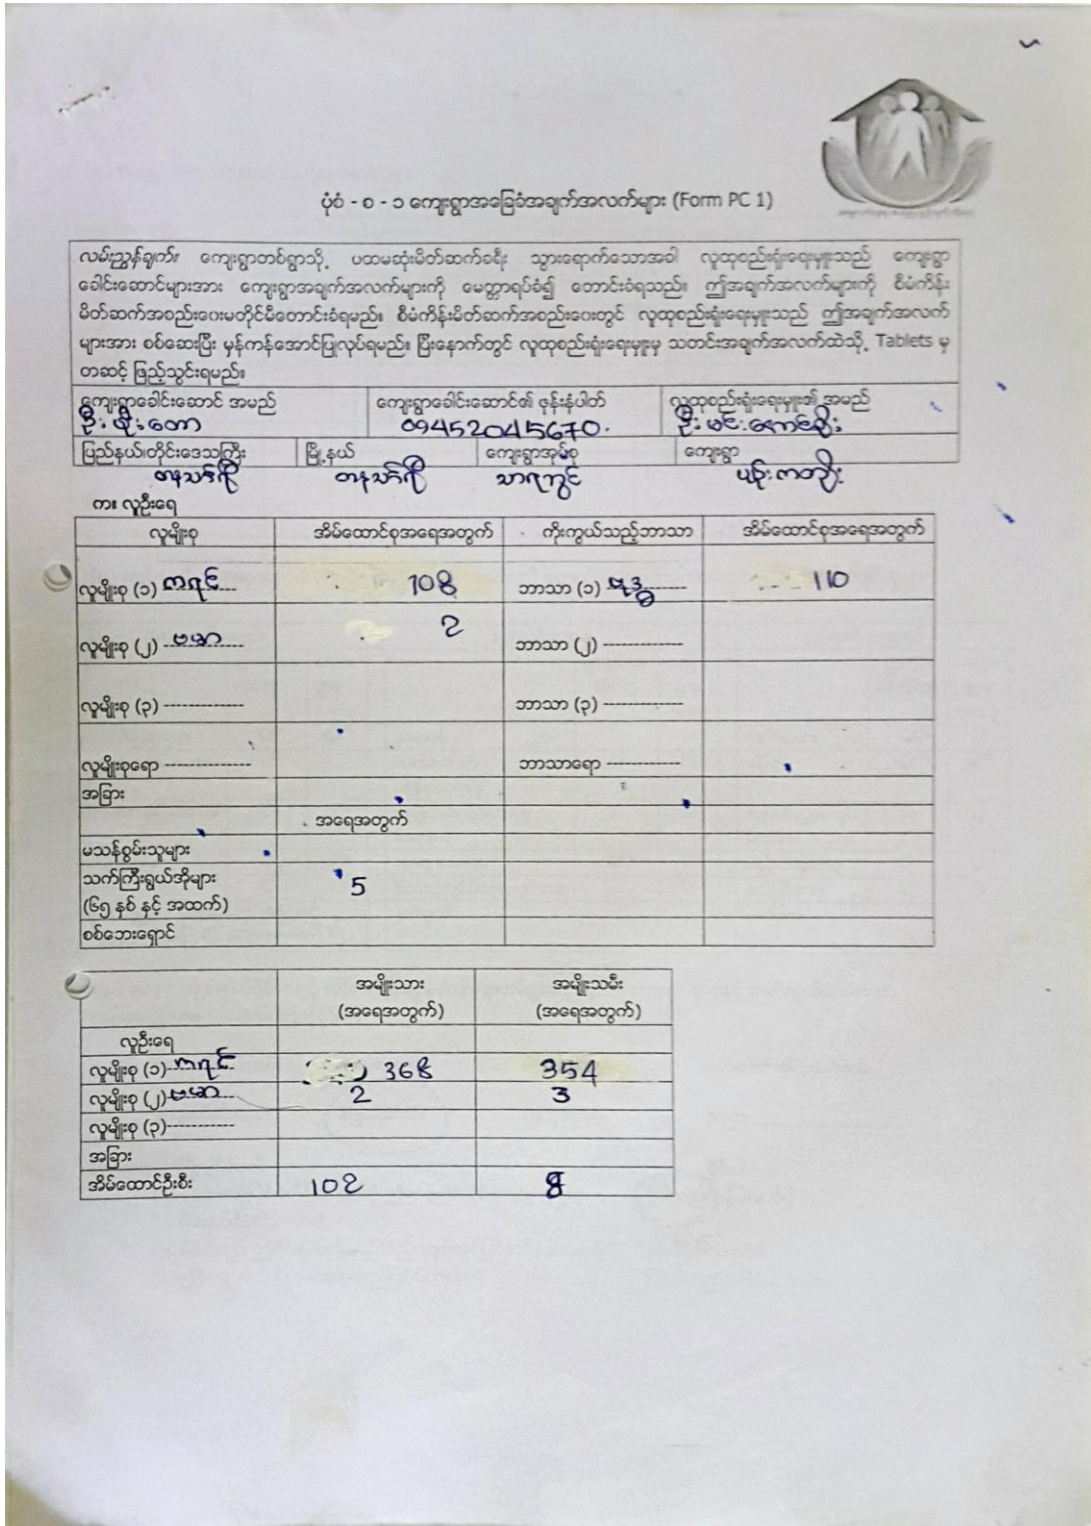 ပုံစံ - စ - ၁ ကျေးရွာအခြေခံအချက်အလက်များ (Form PC 1)
လမ်းညွှန်ချက်။ ကျေးရွာတစ်ရွာသို့ ပထမဆုံးမိတ်ဆက်ခရီး သွားရောက်သောအခါ လူထုစည်းရုံးရေးမှူးသည် ကျေးရွာ
ခေါင်းဆောင်များအား ကျေးရွာအချက်အလက်များကို မေတ္တာရပ်ခံ၍ တောင်းခံရသည်။ ဤအချက်အလက်များကို စီမံကိန်း
မိတ်ဆက်အစည်းဝေးမတိုင်မီတောင်းခံရမည်။ စီမံကိန်းမိတ်ဆက်အစည်းဝေးတွင် လူထုစည်းရုံးရေးမှူးသည် ဤအချက်အလက်
များအား စစ်ဆေးပြီး မှန်ကန်အောင်ပြုလုပ်ရမည်။ ပြီးနောက်တွင် လူထုစည်းရုံးရေးမှူးမှ သတင်းအချက်အလက်ထဲသို့ Tablets မှ
တဆင့် ဖြည့်သွင်းရမည်။
ကျေးရွာခေါင်းဆောင် အမည် ကျေးရွာခေါင်းဆောင်၏ ဖုန်းနံပါတ် လူထုစည်းရုံးရေးမှူး၏ အမည်
ဦး ဖိုး တော 09452045670. ဦး မင်း အောင်စိုး
ပြည်နယ်၊တိုင်းဒေသကြီး မြို့နယ် ကျေးရွာအုပ်စု ကျေးရွာ
တနင်္သာရီ တနင်္သာရီ သာရဘွင်
က။ လူဦးရေ
လူမျိုးစု အိမ်ထောင်စုအရေအတွက် ကိုးကွယ်သည့်ဘာသာ အိမ်ထောင်စုအရေအတွက်
လူမျိုးစု (၁) ကရင် 108 ဘာသာ (၁) ဗုဒ္ဓ 110
လူမျိုးစု (၂) ဗမာ 2 ဘာသာ (၂) -------------
လူမျိုးစု (၃) ------------- ဘာသာ (၃) -------------
လူမျိုးစုရော -------------- ဘာသာရော ------------
အခြား
အရေအတွက်
မသန်စွမ်းသူများ
သက်ကြီးရွယ်အိုများ 5
(၆၅ နှစ် နှင့် အထက်)
စစ်ဘေးရှောင်
အမျိုးသား အမျိုးသမီး
(အရေအတွက်) (အရေအတွက်)
လူဦးရေ
လူမျိုးစု (၁) ကရင် 368 354
လူမျိုးစု (၂) ဗမာ 2 3
လူမျိုးစု (၃)-----------
အခြား
အိမ်ထောင်ဦးစီး 102 8